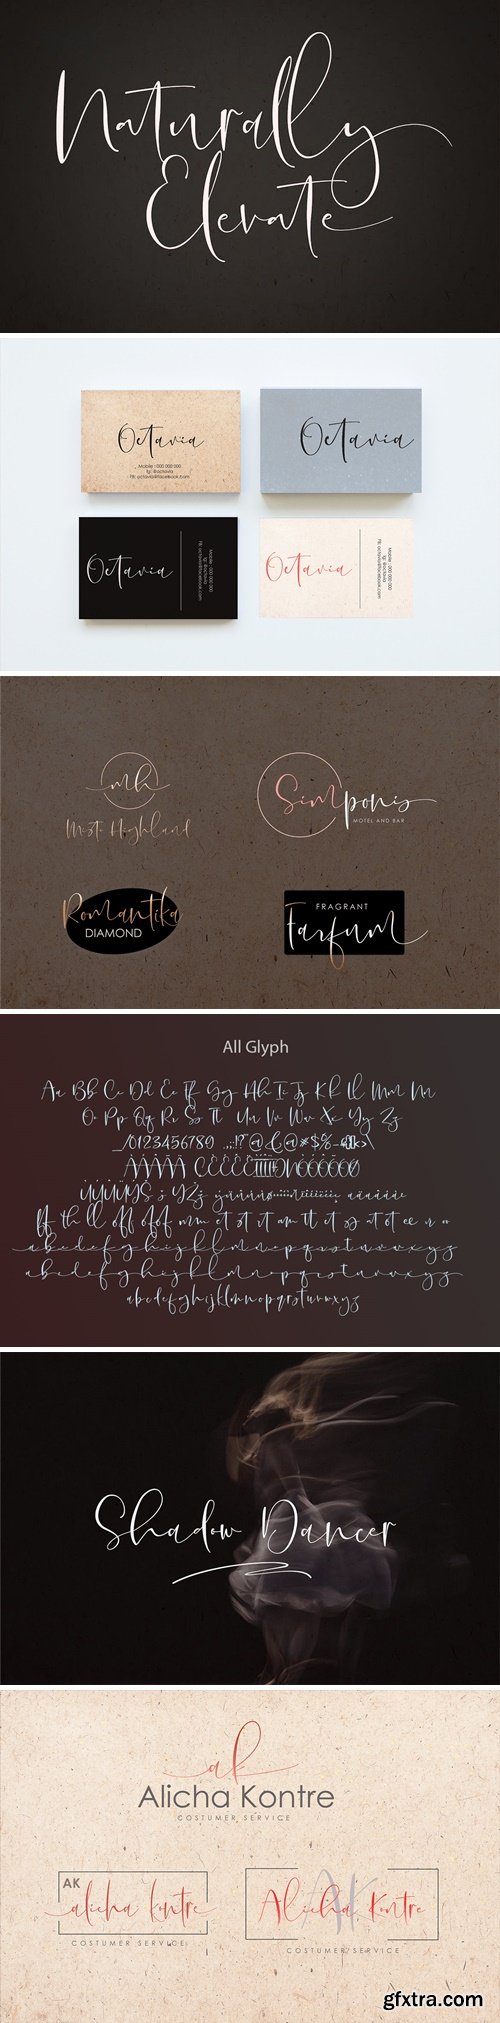 Naturally
Elevate
Octavia
Mobile : 000 000 000
Ig: @octavia
FB: octavia@facebook.com
Octavia
Octavia
Mobile : 000 000 000
Ig: @octavia
FB: octavia@facebook.com
Octavia
Mobile : 000 000 000
Ig: @octavia
FB: octavia@facebook.com
mh
Mist Highland
Simponis
MOTEL AND BAR
Romantika
DIAMOND
FRAGRANT
Farfum
All Glyph
Aa Bb Cc Dd Ee Ff Gg Hh Ii Jj Kk Ll Mm Nn
Oo Pp Qq Rr Ss Tt Uu Vv Ww Xx Yy Zz
0123456789
abcdefghijklmnopqrstuvwxyz
abcdefghijklmnopqrstuvwxyz
abcdefghijklmnopqrstuvwxyz
Shadow Dancer
ak
Alicha Kontre
COSTUMER SERVICE
AK
alicha kontre
COSTUMER SERVICE
AK
Alicha Kontre
COSTUMER SERVICE
gfxtra.com